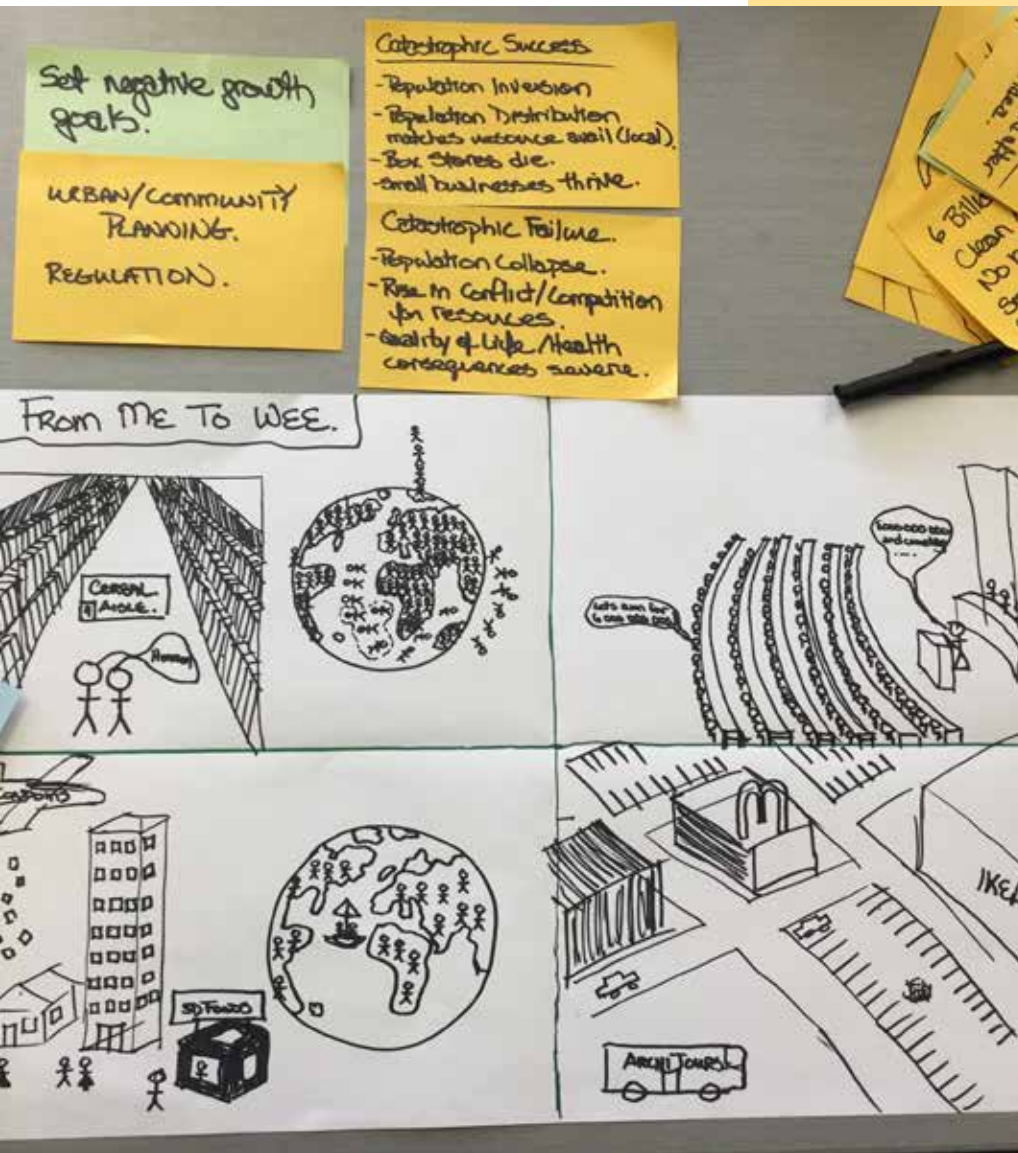 Set negative growth
goals.
URBAN/COMMUNITY
PLANNING.
REGULATION.
Catastrophic Success
-Population Inversion
-Population Distribution
matches resource avail (local).
-Box Stores die.
-small businesses thrive.
Catastrophic Failure.
-Population Collapse.
-Rise in Conflict/Competition
for resources.
-Quality of Life/Health
consequences severe.
6 Billio
Clean
No
FROM ME TO WEE.
CEREAL
AISLE.
Let's aim for
6 000 000 000
and counting
....
IKEA
ARCHITOURS